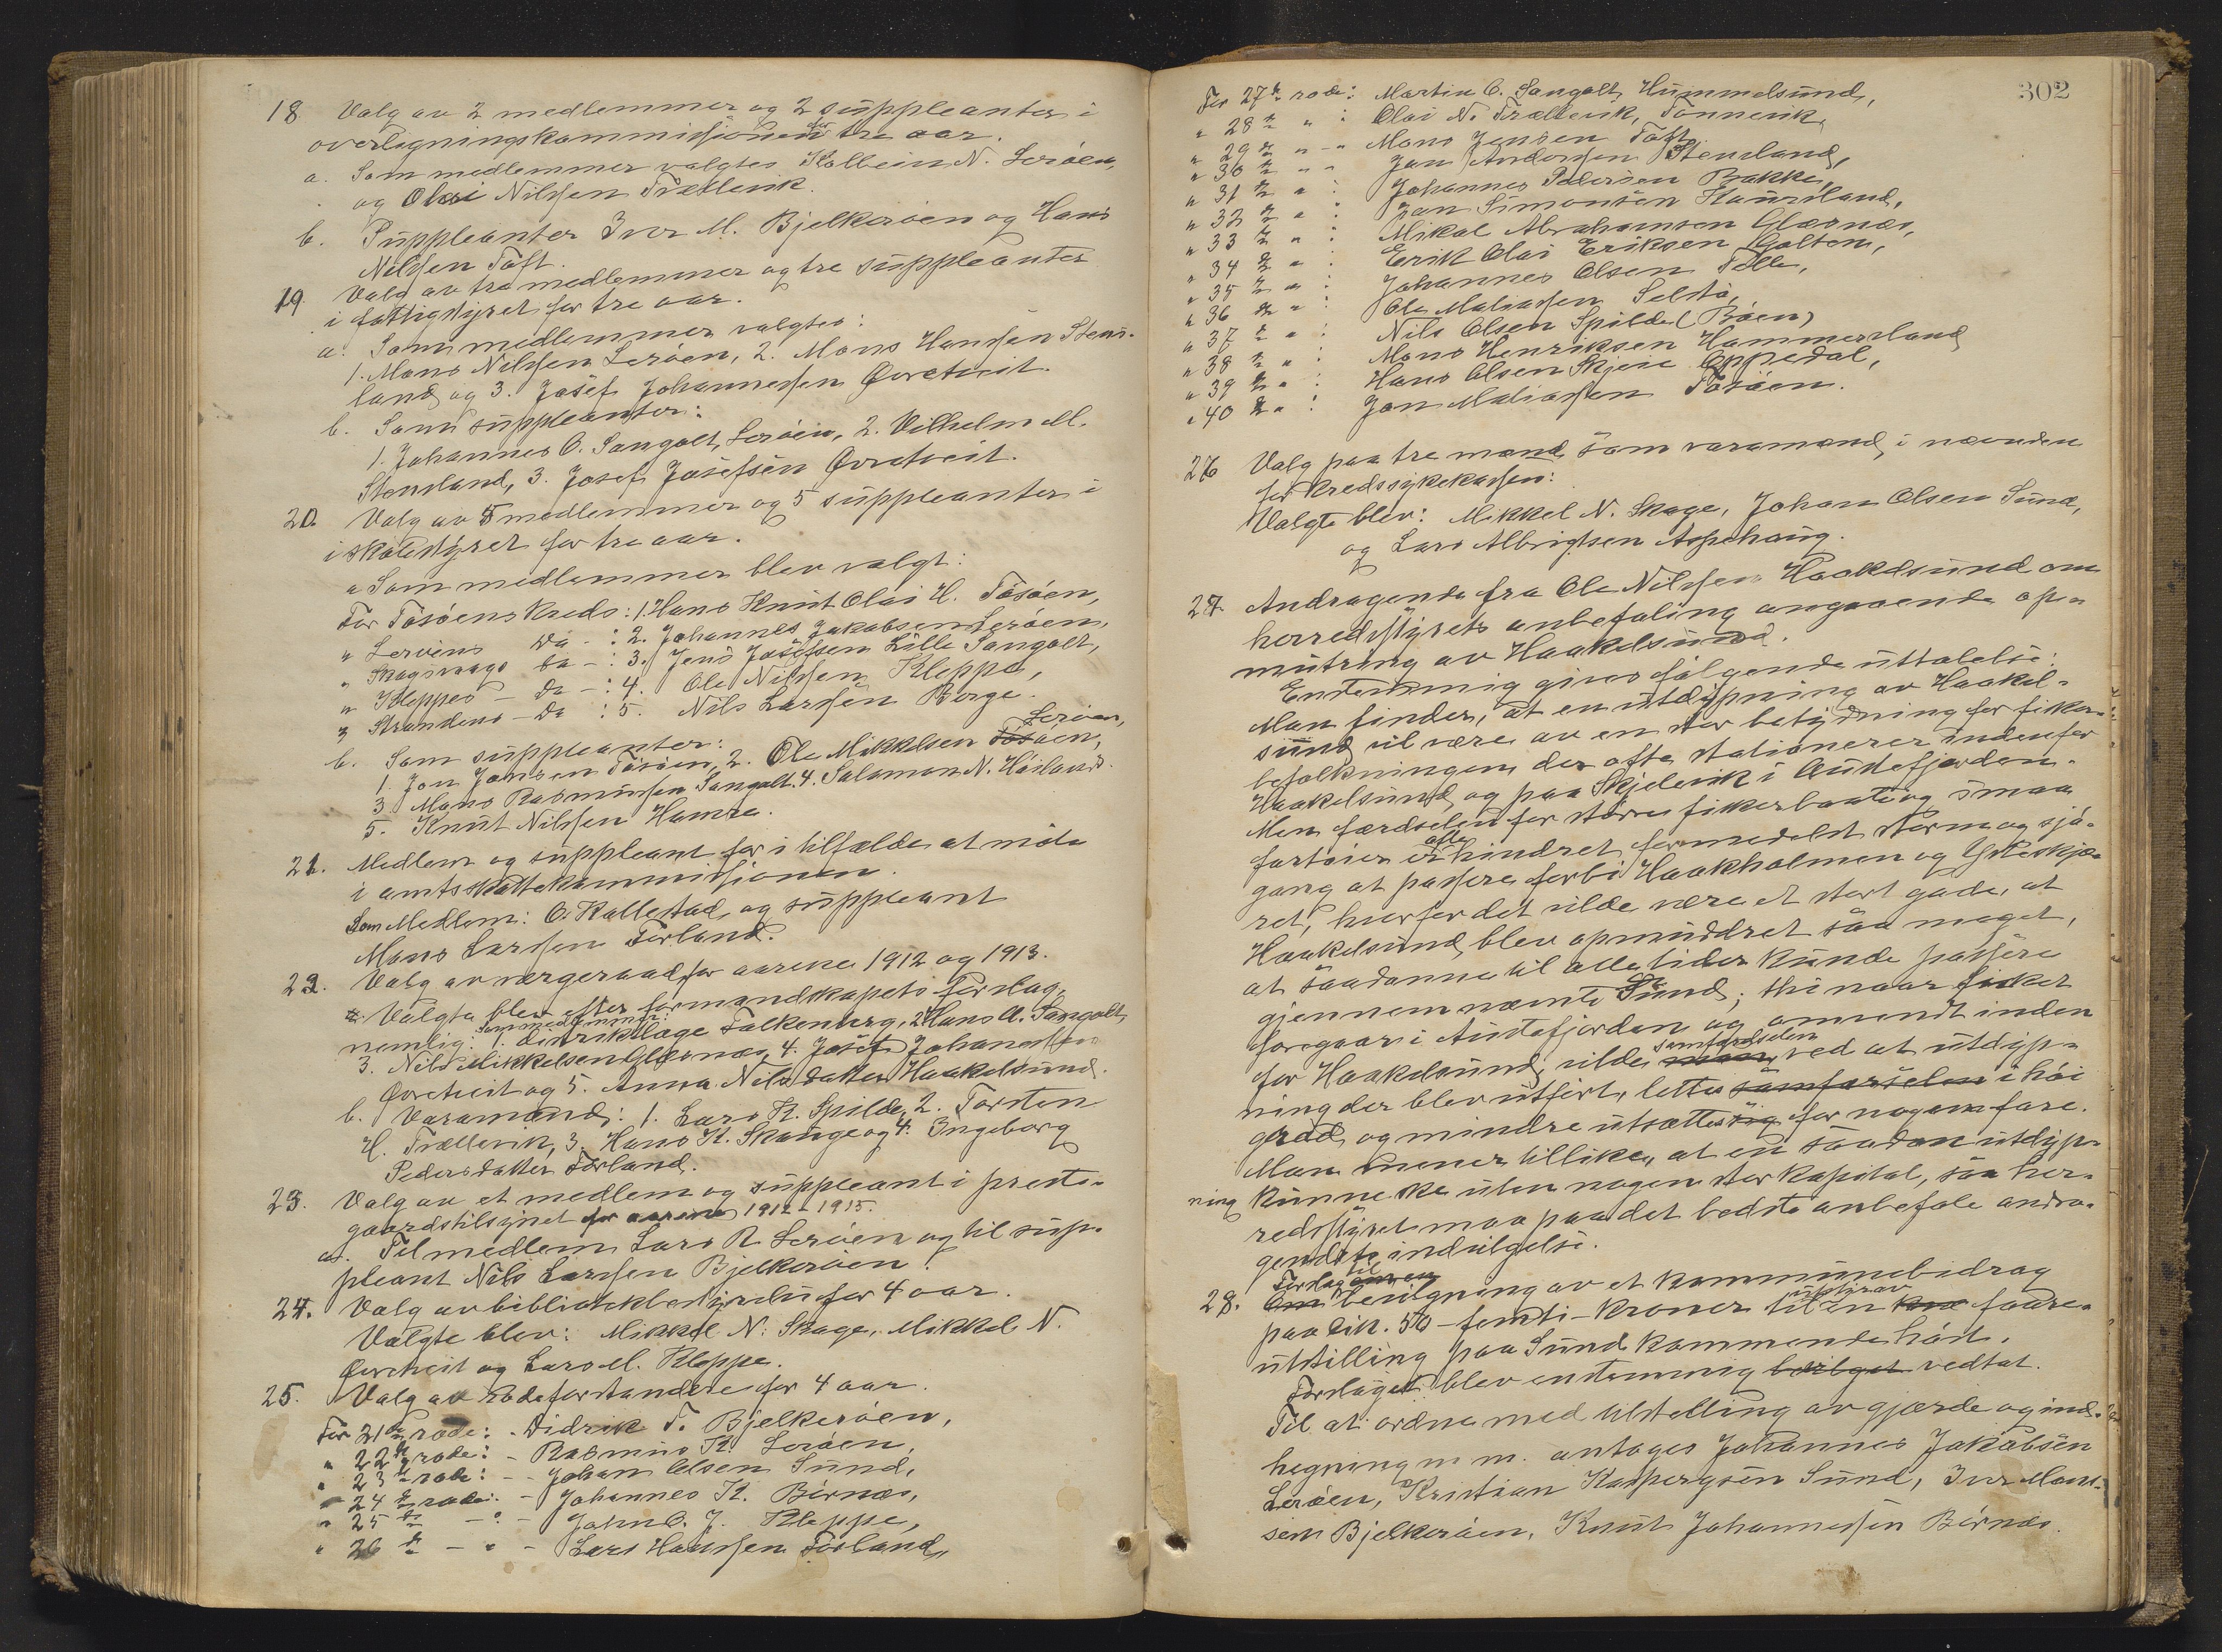 18 Valg av 2 medlemmer og 2 suppleanter i
overligningskommissionen for tre aar.
a. Som medlemmer valgtes Kolbein N. Lerøen,
og Olai Nilssen Trællevik.
b. Suppleanter Iver M. Bjelkerøen og Hans
Nilssen Toft.
19. Valg av tre medlemmer og tre suppleanter
i fattigstyret for tre aar.
a. Som medlemmer valgtes:
1. Mons Nilssen Lerøen, 2. Mons Hanssen Stens-
land og 3. Josef Johannessen Qvetveit.
b. Som suppleanter:
1. Johannes O. Sangolt, Lerøen, 2. Vilhelm M.
Stensland, 3. Josef Josefsen Qvetveit.
20. Valg av 5 medlemmer og 5 suppleanter i
i skolestyret for tre aar.
a Som medlemmer blev valgt:
For Tøsøens kreds: 1. Hans Knut Olai H. Tøsøen,
" Lerøens Do -: 2. Johannes Jakobsen Lerøen,
" Skogsvaags Do -: 3. Jens Josefsen Lille Sangolt,
" Kleppes - Do -: 4. Ole Nilssen Kleppe,
" Strandens - Do : 5. Nils Larssen Berge.
b. Som suppleanter: Lerøen,
1. Jon Jonsen Tøsøen, 2. Ole Mikkelsen Tøsøen,
3. Mons Rasmussen Sangolt. 4. Salamon N. Høiland.
5. Knut Nilssen Hamre.
21. Medlem og suppleant for i tilfælde at møte
i amtsskattekommissionen.
Som Medlem: O. Kallestad og suppleant
Mons Larssen Førland.
22. Valg av værgeraad for aarene 1912 og 1913.
a. Valgte blev efter formandskapets forslag,
som medlemmer:
nemlig: 1. distriktslæge Falkenberg, 2 Hans A. Sangolt,
3. Nils Mikkelsen Glesnæs, 4. Josef Johannessen
Qvetveit og 5. Anna Nilsdatter Haakelsund.
b. Varamænd: 1. Lars K. Spilde, 2. Torsten
H. Trællevik, 3. Hans K. Skauge og 4. Ingeborg
Pedersdatter Førland.
23. Valg av et medlem og suppleant i preste-
gaardstilsynet for aarene 1912 - 1915.
a. Til medlem Lars R. Lerøen og til sup-
pleant Nils Larssen Bjelkerøen.
24. Valg av bibliotekbestyrelse for 4 aar.
Valgte blev: Mikkel N. Skoge, Mikkel N.
Qvetveit og Lars M. Kleppe.
25. Valg av rodeforstandere for 4 aar.
For 21de rode: - Didrik T. Bjelkerøen,
" 22de rode: - Rasmus K. Lerøen,
" 23de rode: - - Johan Olsen Sund,
" 24de rode: - Johannes K. Børnæs,
" 25de - " - John O. J. Kleppe,
" 26de - " - Lars Hanssen Førland,
302
For 27de rode: Martin O. Sangolt, Hummelsund,
" 28de " : Olai N. Trællevik, Tønnevik,
" 29de " - " Mons Jensen Toft,
" 30de " " Jon Anderssen Stensland,
" 31de " : Johannes Pedersen Bakke,
" 32de " : Jan Simonsen Kaursland,
" 33de " : Mikal Abrahamsen Glesnæs,
" 34de " : Erik Olai Eriksen Golten,
" 35de " : Johannes Olsen Telle,
" 36de " : Ole Matiassen Selstø,
" 37de " : Nils Olsen Spilde (Røen)
" 38de " : Mons Henriksen Hammersland
" 39de " : Hans Olsen Skjeie Oppedal,
" 40de " : Jon Matiassen Tøsøen.
26 Valg paa tre mænd som varamænd i nævnden
for kredssykekassen:
Valgte blev: Mikkel N. Skoge, Johan Olsen Sund,
og Lars Albrigtsen Aspehaug.
27. Andragende fra Ole Nilssen Haakelsund om
herredsstyrets anbefaling angaaende op-
mutring av Haakelsund.
Enstemmig gives følgende uttalelse:
Man finder, at en utdypning av Haakel-
sund vil være av en stor betydning for fisker-
befolkningen, der ofte stationerer indenfor
Haakelsund og paa Skjelevik i Austefjorden.
Men færdselen for større fiskerbaater og smaa
ofte
fartøier er hindret formedelst storm og sjø-
gang at passere forbi Haakholmen og Ytteskjæ-
ret, hvorfor det vilde være et stort gode, at
Haakelsund blev opmuddret saa meget,
at saadanne til alle tider kunde passere
gjennem nævnte Sund; thi naar fisket
foregaar i Austefjorden og omvendt inden
samfærdselen
for Haakelsund, vilde man ved at utdyp-
ning der blev utført, lettes samfærselen i høi
grad, og mindre utsættes sig for nogen fare.
Man mener tillike, at en saadan utdyp-
ning kunne ske uten nogen stor kapital, saa her-
redsstyret maa paa det bedste anbefale andra-
gendets indvilgelse.
til
28. Forslag om en
Om bevilgning av et kommunebidrag
utstyr av
paa Kr. 50 - femti - kroner til en faare-
utstilling paa Sund kommende høst.
Forslaget blev enstemmig bevilget vedtat.
Til at ordne med tilstelling av gjærde og ind-
hegning m. m. antoges Johannes Jakobsen
Lerøen, Kristian Kaspersen Sund, Iver Mons-
sen Bjelkerøen, Knut Johannessen Børnæs.